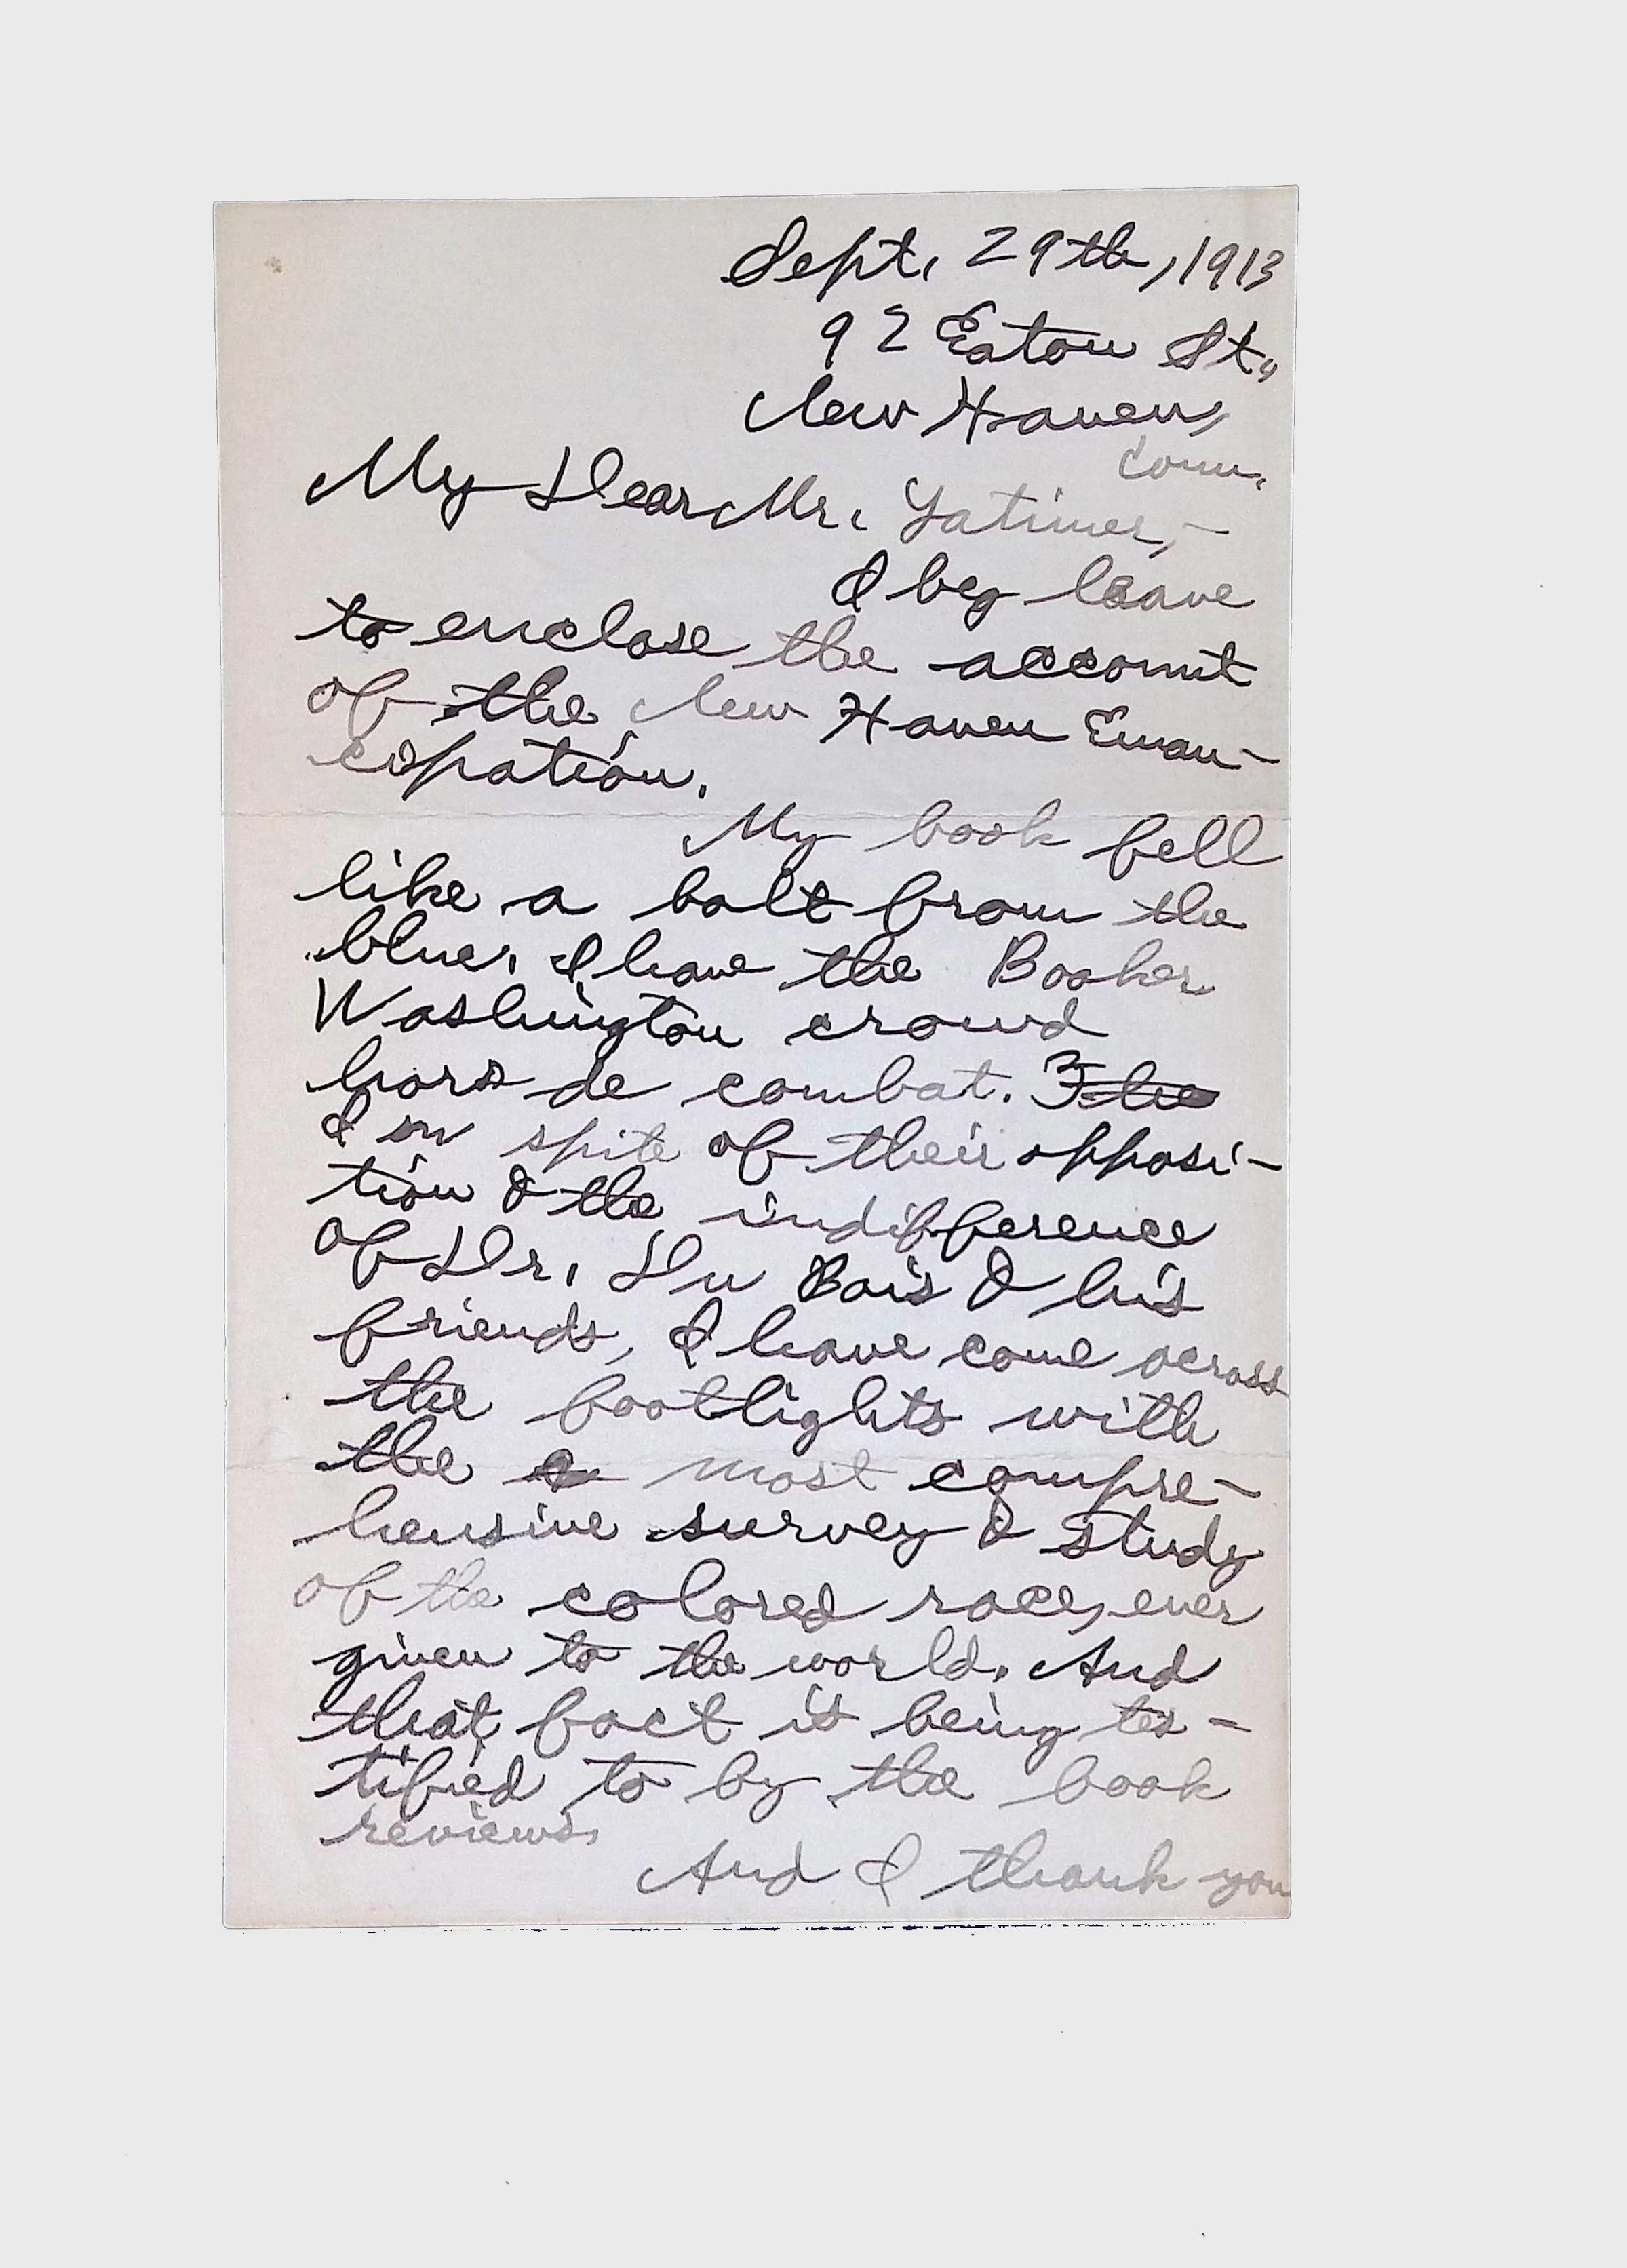 Sept. 29th, 1913
92 Eaton St.,
New Haven,
Conn.
My Dear Mr. Latimer,—
I beg leave
to enclose the account
of the New Haven Eman-
cipation.
My book fell
like a bolt from the
blue. I have the Booker
Washington crowd
hors de combat. The
& in spite of their opposi-
tion & the indifference
of Dr. Du Bois & his
friends, I have come across
the footlights with
the most compre-
hensive survey & study
of the colored race, ever
given to the world. And
that fact is being tes-
tified to by the book
reviews.
And I thank you